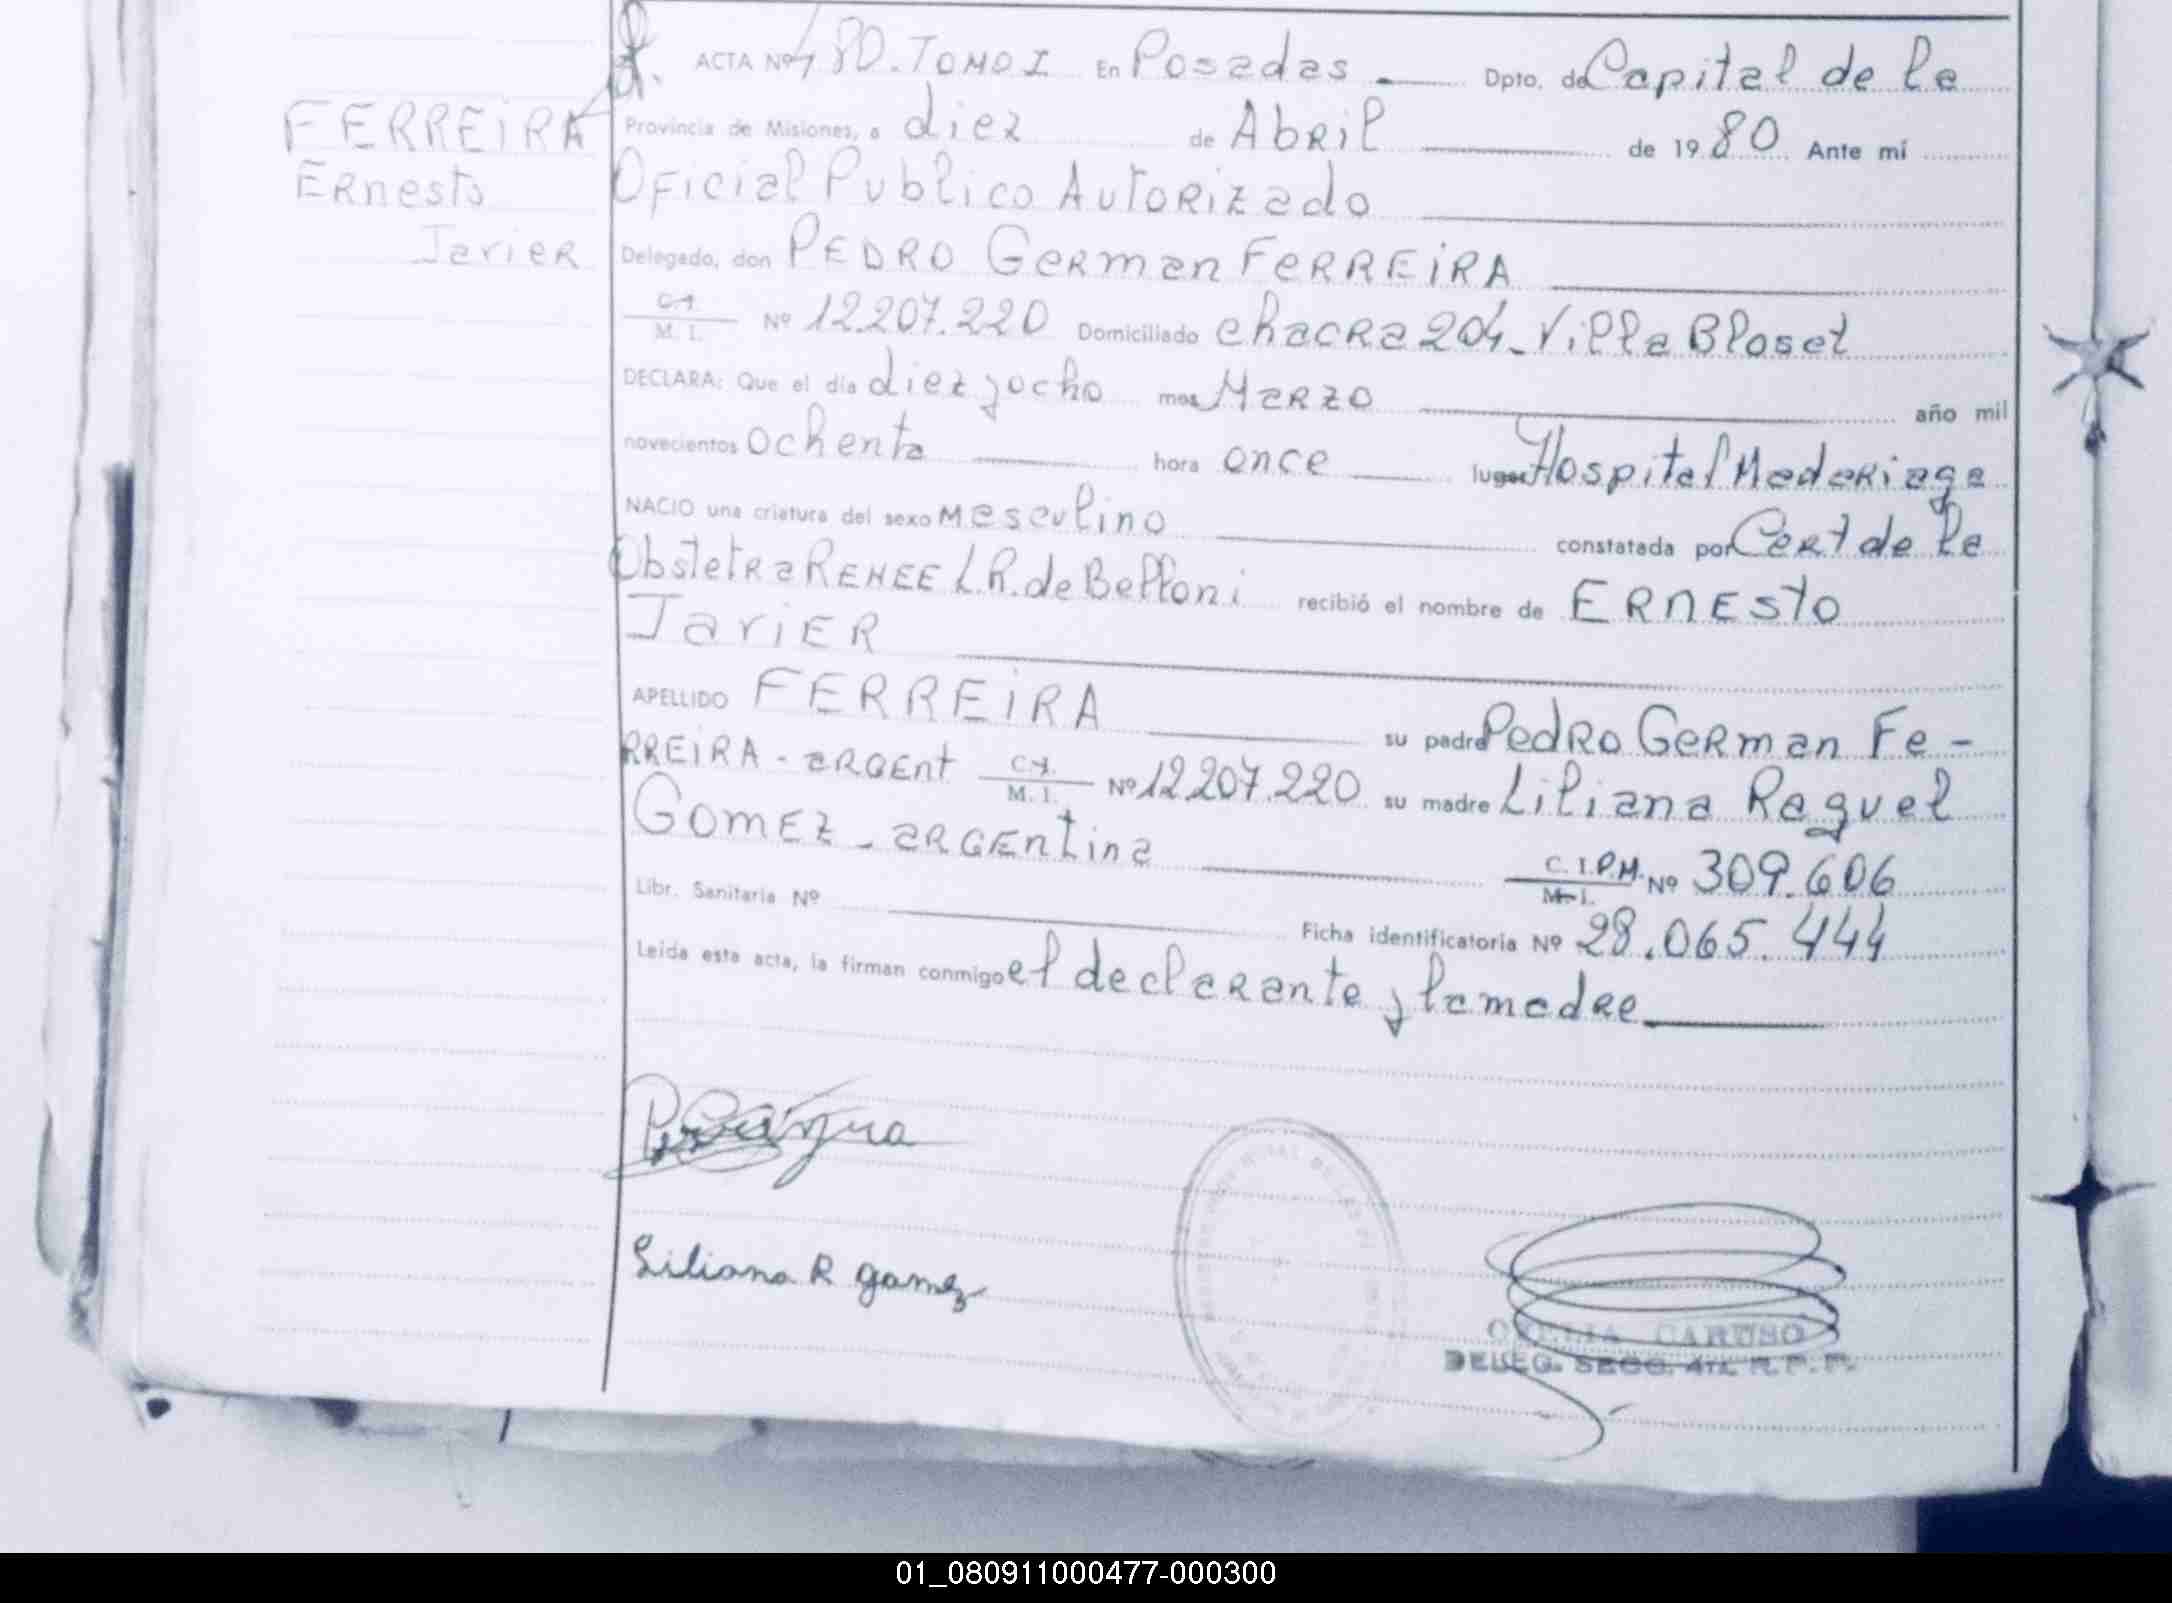 ACTA Nº 480. TOMO I En Posadas Dpto. de Capital de la
FERREIRA
Ernesto
Javier
Provincia de Misiones, a diez de Abril de 1980 Ante mí
Oficial Publico Autorizado
Delegado, don PEDRO German FERREIRA
C.I. M. I. Nº 12.207.220 Domiciliado chacra 204 - Villa Bloset
DECLARA: Que el día diez y ocho mes Marzo año mil
novecientos ochenta hora once lugar Hospital Madariaga
NACIO una criatura del sexo masculino constatada por Cert de la
Obstetra RENEE L.R. de Belloni recibió el nombre de ERNESTO
JaviER
APELLIDO FERREIRA su padre Pedro German Fe-
RREIRA - argent C.I. M. I. Nº 12.207.220 su madre Liliana Raquel
GOMEZ - argentina C. I.P.M. M. I. Nº 309.606
Libr. Sanitaria Nº Ficha identificatoria Nº 28.065.444
Leída esta acta, la firman conmigo el declarante y la madre
Liliana R gomez
OFELIA CARUSO
DELEG. SECC. 4ta. R.P.P.
01_080911000477-000300